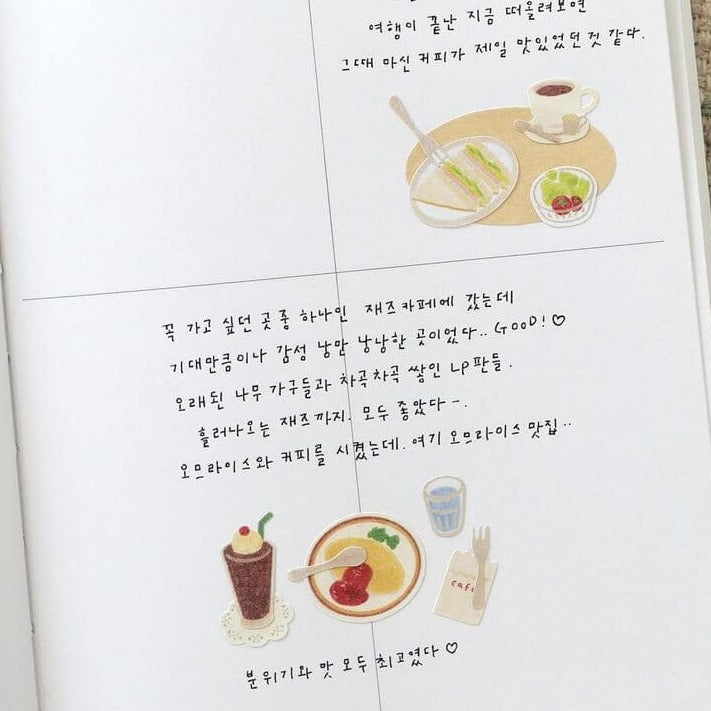 여행이 끝난 지금 떠올려보면
그때 마신 커피가 제일 맛있었던 것 같다.
꼭 가고 싶던 곳 중 하나인 재즈카페에 갔는데
기대만큼이나 감성 낭만 낭낭한 곳이었다.. GOOD! ♡
오래된 나무 가구들과 차곡차곡 쌓인 LP판들.
흘러나오는 재즈까지. 모두 좋았다-.
오므라이스와 커피를 시켰는데. 여기 오므라이스 맛집..
cafe
분위기와 맛 모두 최고였다 ♡